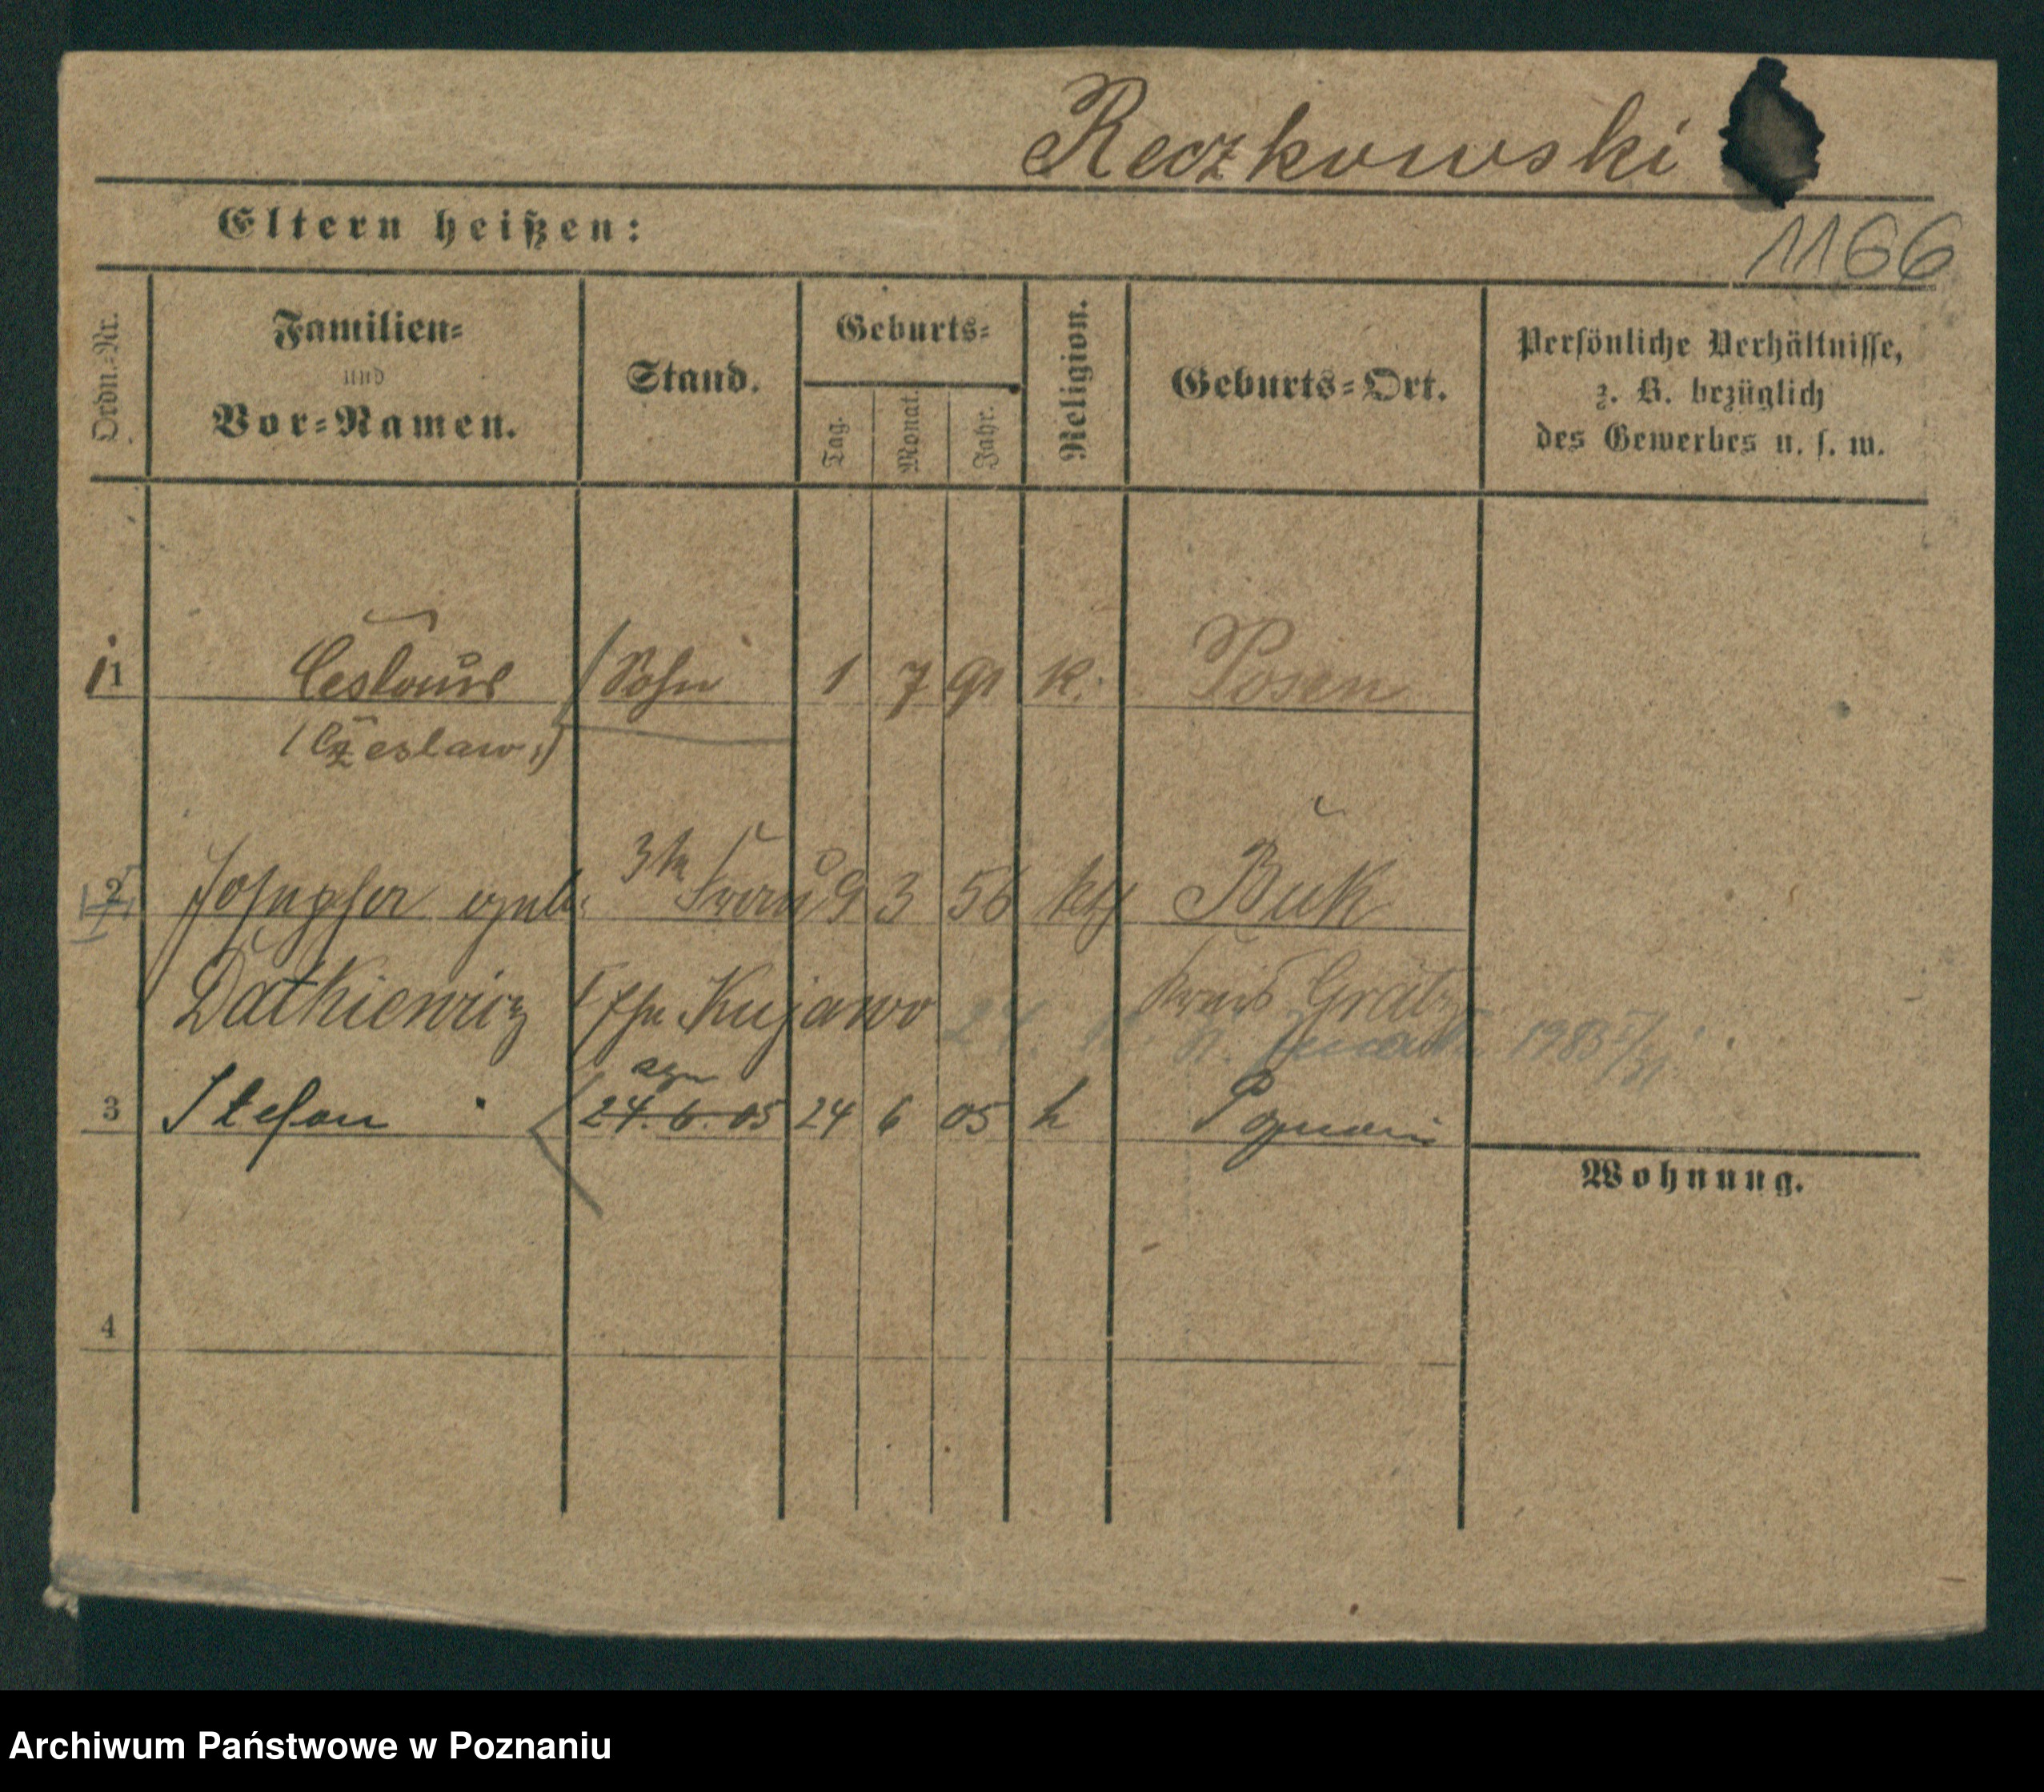 Reczkowski
Eltern heißen:
1166
Ordn.=Nr.
Familien=
und
Vor=Namen.
Stand.
Geburts=
Tag.
Monat.
Jahr.
Religion.
Geburts=Ort.
Persönliche Verhältnisse,
z. B. bezüglich
des Gewerbes u. s. w.
1 Ceslaus Sohn 1 7 91 K. Posen
(Czeslaw)
2 3te Frau 9 3 56 kth Buk
Datkiewicz Kujawa Kreis Grätz
3 Stefan 24.6.05 24 6 05 k Poznań
Wohnung.
4
Archiwum Państwowe w Poznaniu